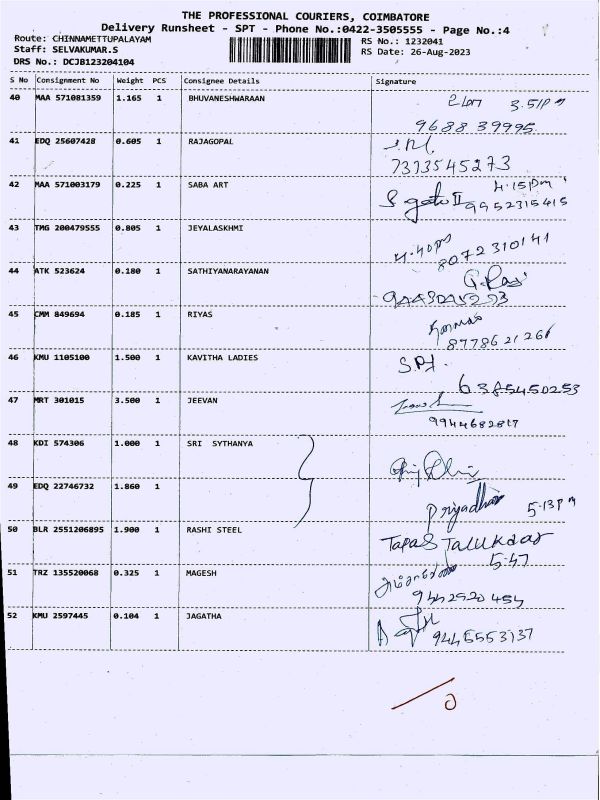 THE PROFESSIONAL COURIERS, COIMBATORE
Delivery Runsheet - SPT - Phone No.:0422-3505555 - Page No.:4
Route: CHINNAMETTUPALAYAM
RS No.: 1232041
Staff: SELVAKUMAR.S
RS Date: 26-Aug-2023
DRS No.: DCJB123204104
S No Consignment No Weight PCS Consignee Details Signature
40 MAA 571081359 1.165 1 BHUVANESHWARAAN
3.51pm
9688 39995
41 EDQ 25607428 0.605 1 RAJAGOPAL
7373545273
42 MAA 571003179 0.225 1 SABA ART
4.15pm
9952315415
43 TMG 200479555 0.805 1 JEYALASKHMI
4.40pm
8072310141
44 ATK 523624 0.180 1 SATHIYANARAYANAN
45 CMM 849694 0.185 1 RIYAS
8778621261
46 KMU 1105100 1.500 1 KAVITHA LADIES
6385450253
47 MRT 301015 3.500 1 JEEVAN
9944682817
48 KDI 574306 1.000 1 SRI SYTHANYA
49 EDQ 22746732 1.860 1
Priyadhar
5-13pm
50 BLR 2551206895 1.900 1 RASHI STEEL
Tapas Talukdar
5-47
51 TRZ 135520068 0.325 1 MAGESH
9442920454
52 KMU 2597445 0.104 1 JAGATHA
9445553137